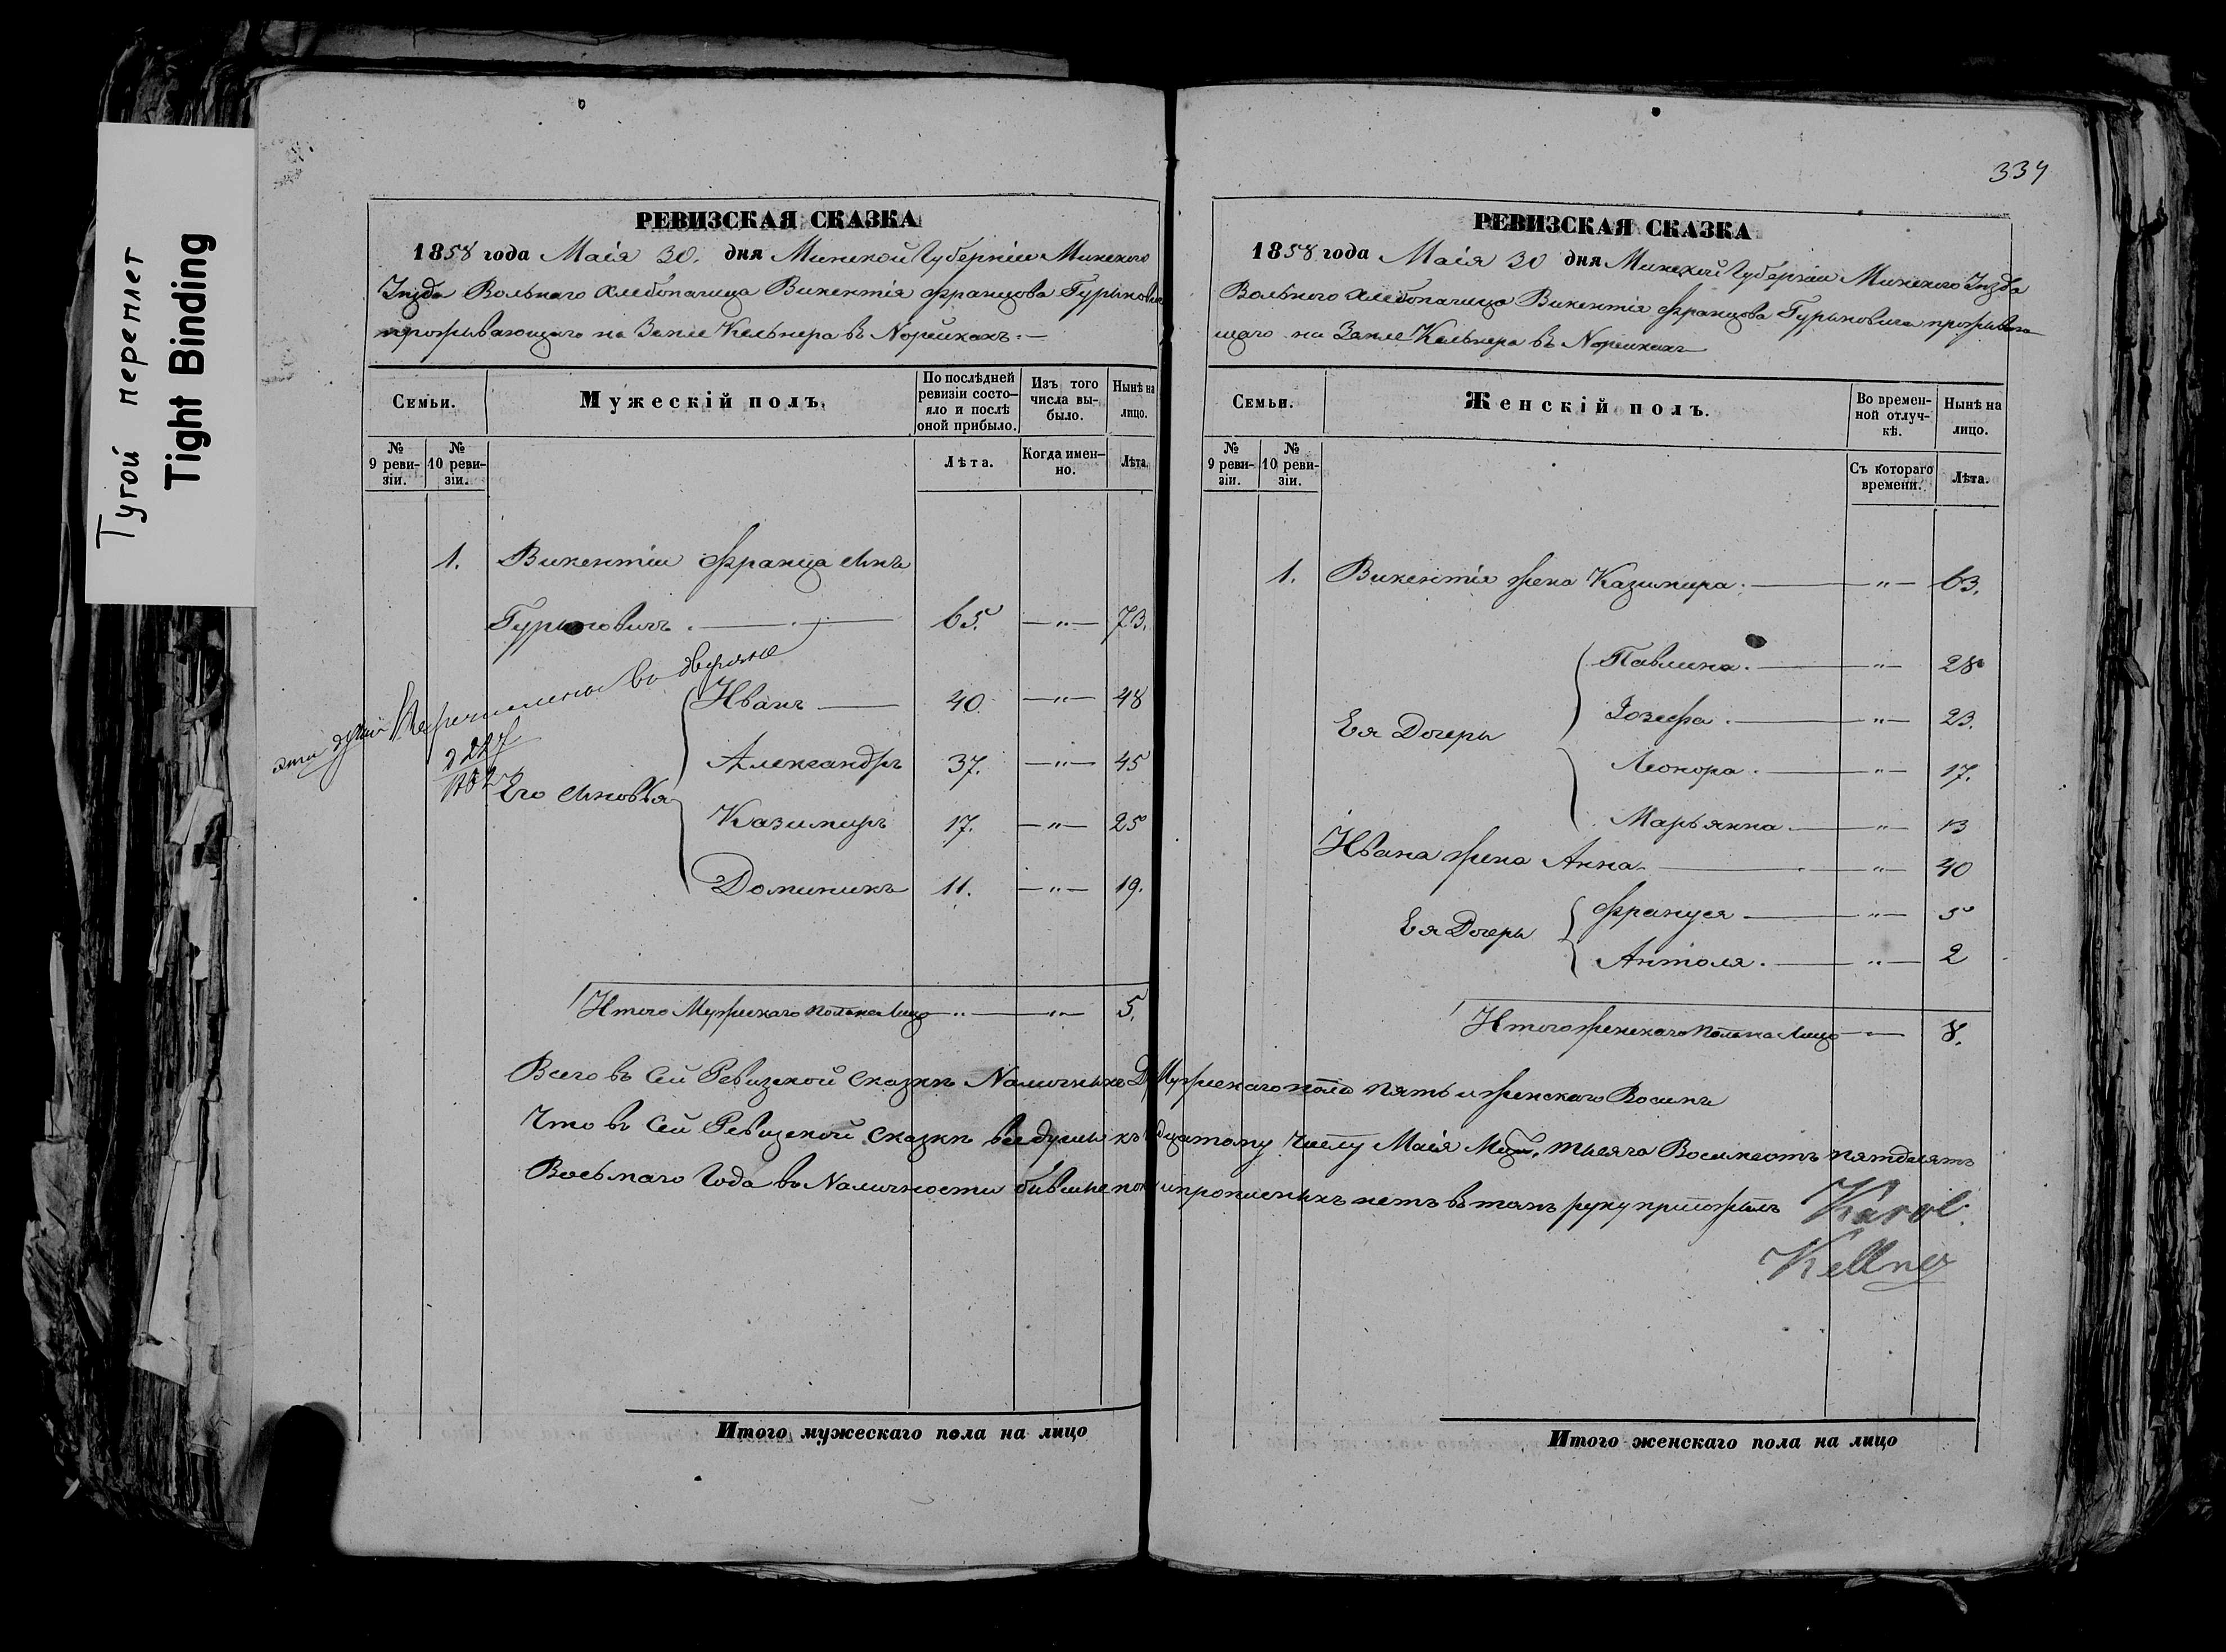 Тугой переплет
Tight Binding
334
РЕВИЗСКАЯ СКАЗКА
1858 года Маія 30. дня Минской Губерніи Минского
Уезда Вольнаго хлебопашца Викентія Францова Гурыновича
проживающаго на Земле Кельнера въ Норейкахъ.—
Семьи.
Мужескій полъ.
По послѣдней ревизіи состояло и послѣ оной прибыло.
Изъ того числа выбыло.
Нынѣ на лицо.
№ 9 ревизіи.
№ 10 ревизіи.
Лѣта.
Когда именно.
Лѣта.
1. Викентіи Франца Сынъ
Гурыновичъ. 65. —"— 73.
эти души Перечислены во дворяне
Его Сыновья
Иванъ — 40. —"— 48
Александръ 37. —"— 45
Казимиръ 17. —"— 25
Доминикъ 11. —"— 19.
Итого Мужескаго пола на Лицо —"— —"— 5.
Итого мужескаго пола на лицо
РЕВИЗСКАЯ СКАЗКА
1858 года Маія 30 дня Минской Губерніи Минского Уезда
Вольного хлебопашца Викентія Францова Гурыновича прожываю
щаго на Земле Кельнера въ Норейкахъ
Семьи.
Женскій полъ.
Во временной отлучкѣ.
Нынѣ на лицо.
№ 9 ревизіи.
№ 10 ревизіи.
Съ котораго времени.
Лѣта.
1. Викентія жена Казимира. —"— 63.
Ея Дочеры
Павлина. —"— 28
Іозефа. —"— 23.
Леонора. —"— 17.
Марьянна. —"— 13
Ивана жена Анна. —"— 40
Ея Дочеры
Француся —"— 5
Антоля. —"— 2
Итого женскаго пола на Лицо —"— 8.
Всего въ Сей Ревизской Сказкѣ Наличныхъ Мужескаго пола пять и женскаго Восимъ
Что въ Сей Ревизской Сказкѣ все души къ дцатому числу Маія тысяча Восимсотъ пятдесятъ
Восьмаго Года въ Наличности бывшие и прописныхъ нетъ въ томъ руку приложилъ Karol
Kellner
Итого женскаго пола на лицо